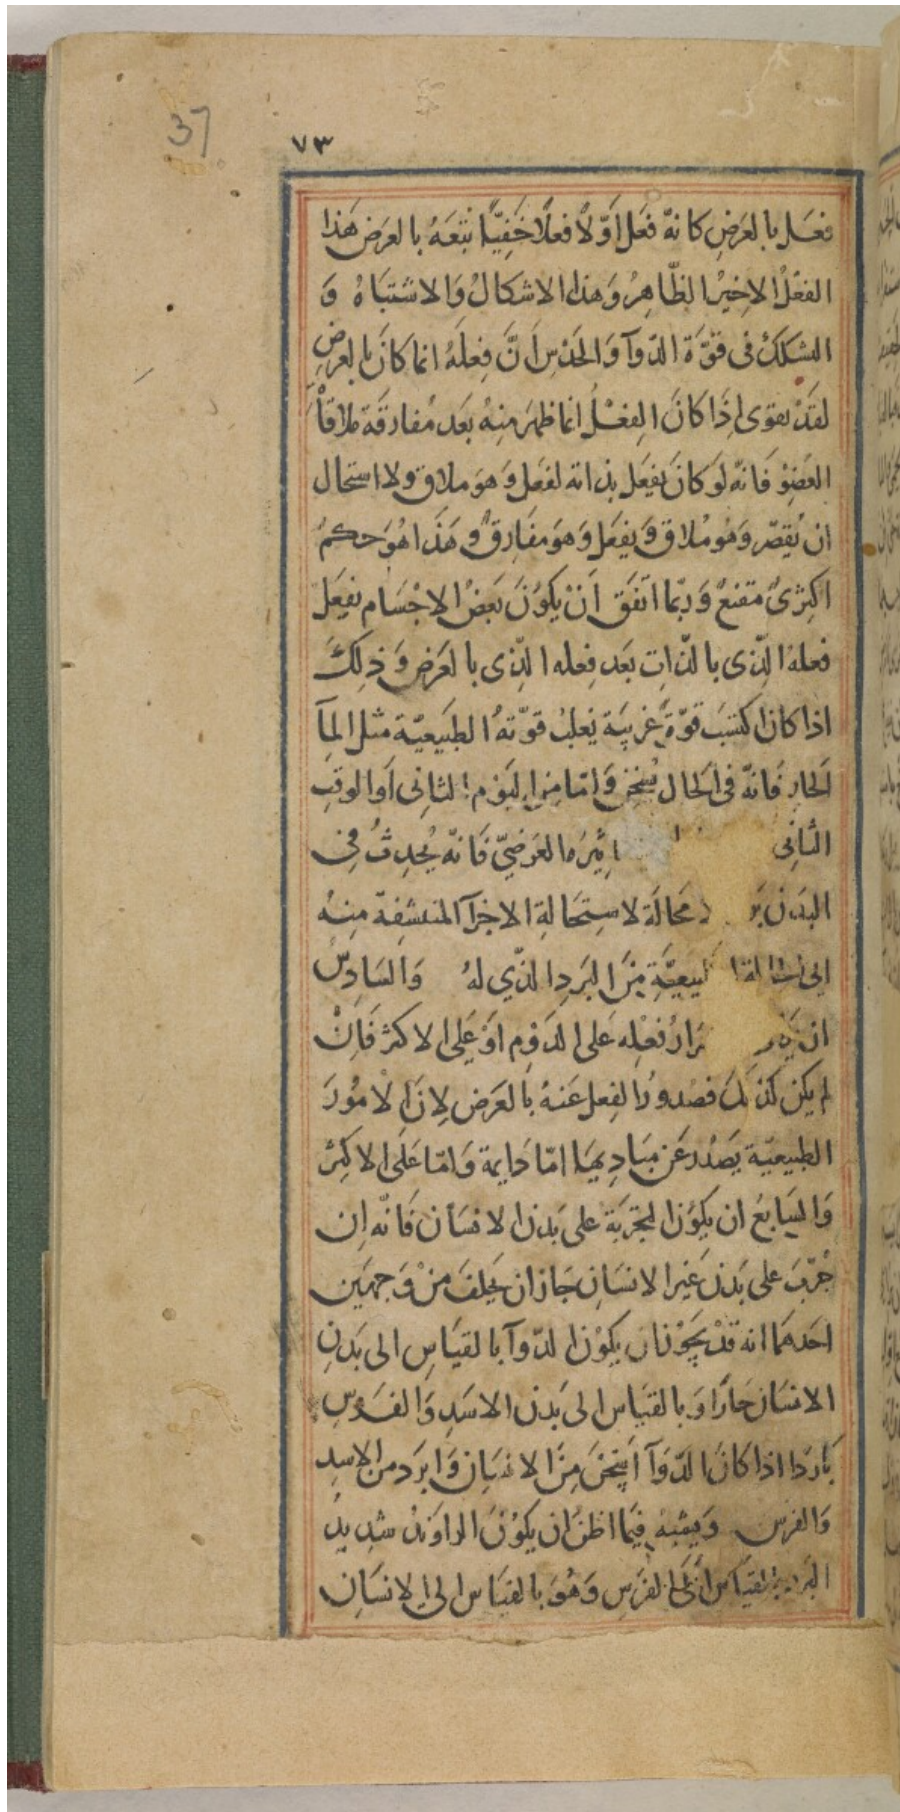 37
٧٣
فعَل بالعَرَضِ كانهّ فَعَل اَوّلاً فعلاً خَفِيّاً يتبَعَهُ بالعَرَض هَذا
الفعْلُ الاخيْرُ الظّاهِرُ وَهذا الاشكالُ وَالاشتبَاهُ وَ
التشككُ فى قوَّة الدّوآ وَالحَدْسِ اَنَّ فِعلَهُ انما كانَ بالعرَضِ
لقدْ يقوى اِذَا كانَ الِفعْلُ انما ظهَرَ مِنهُ بَعَد مُفارقَة ملاقاً
العضوْ فَانهّ لوَ كانَ يفعَل بذاته لفعَل وَهوَ ملاق ولا استحَال
ان يُقصّر وَهوُ مُلاق وَيفعَل وَهوَ مفَارِقٌ وهَذَا هُوَ حكمُ
اكثرىٌ مقنعٌ وَربّما اتفَق اَنْ يَكوُنَ بَعَضُ الاجْسَام يفعَل
فعلهُ الذّى بالذّاتِ بَعَد فِعله الذّى بالعَرَضِ وَذلِكَ
اذا كان اكتسَبَ قوّةً غريبَة يغلِبُ قوّتهُ الطبَيعيّة مثل المآ
اَلحار فَانهّ فى اَلحَال يُسخِن وَامّا مِنِ اليَوْم الثانِى اَو الوقتِ
الثانِى اثِيرُهُ العَرَضيّ فَانهّ يُحِدثُ فى
البَدَن محَالَة لاستِحَالةِ الاجزآ المتنشِفة مِنهُ
الى بيعيَّةِ مِنَ البَردِ الذّي لهُ وَالسَادِسُ
ان فعْلِه عَلى الدَوْم اوَْ عَلى الاكثر فَاِنْ
لم يكن كذلكَ فصُدورُ الفِعل عَنهُ بالعَرَض لاِنَ الاُمُورَ
الطبيعيّة يَصَدُر عَن مبَاديهَا امّا دَايمة وَامّا عَلَى الاكثَر
وَالسَّابعُ ان يَكوُنَ التجْرَبَة على بَدنِ الانسَان فَانهّ اِن
جُرّبَ على بَدَن غَيرِ الانسَانِ جَازَ ان يَخلفَ مِنْ وَجهَين
احَدهُمَا انه قدْ يَجُوْز ان يكوْنَ الدّوآ بالقيَاسِ الى بَدَنِ
الانسَان حَارًا وَ بالقيَاس الى بَدَن الاسَدِ وَالفرَسِ
بَاردًا اذا كانَ الدّوَآ اَسَخَنَ مِنَ الانسَان وَابرَد من الاسدِ
وَالفرَس وَيشبهُ فيمَا اظنُ ان يَكوُنَ الراوَندُ شديدُ
البَرد بالقيَاس اِلَى الفرَسِ وَهُوَ بالقيَاس الى الانسَانِ